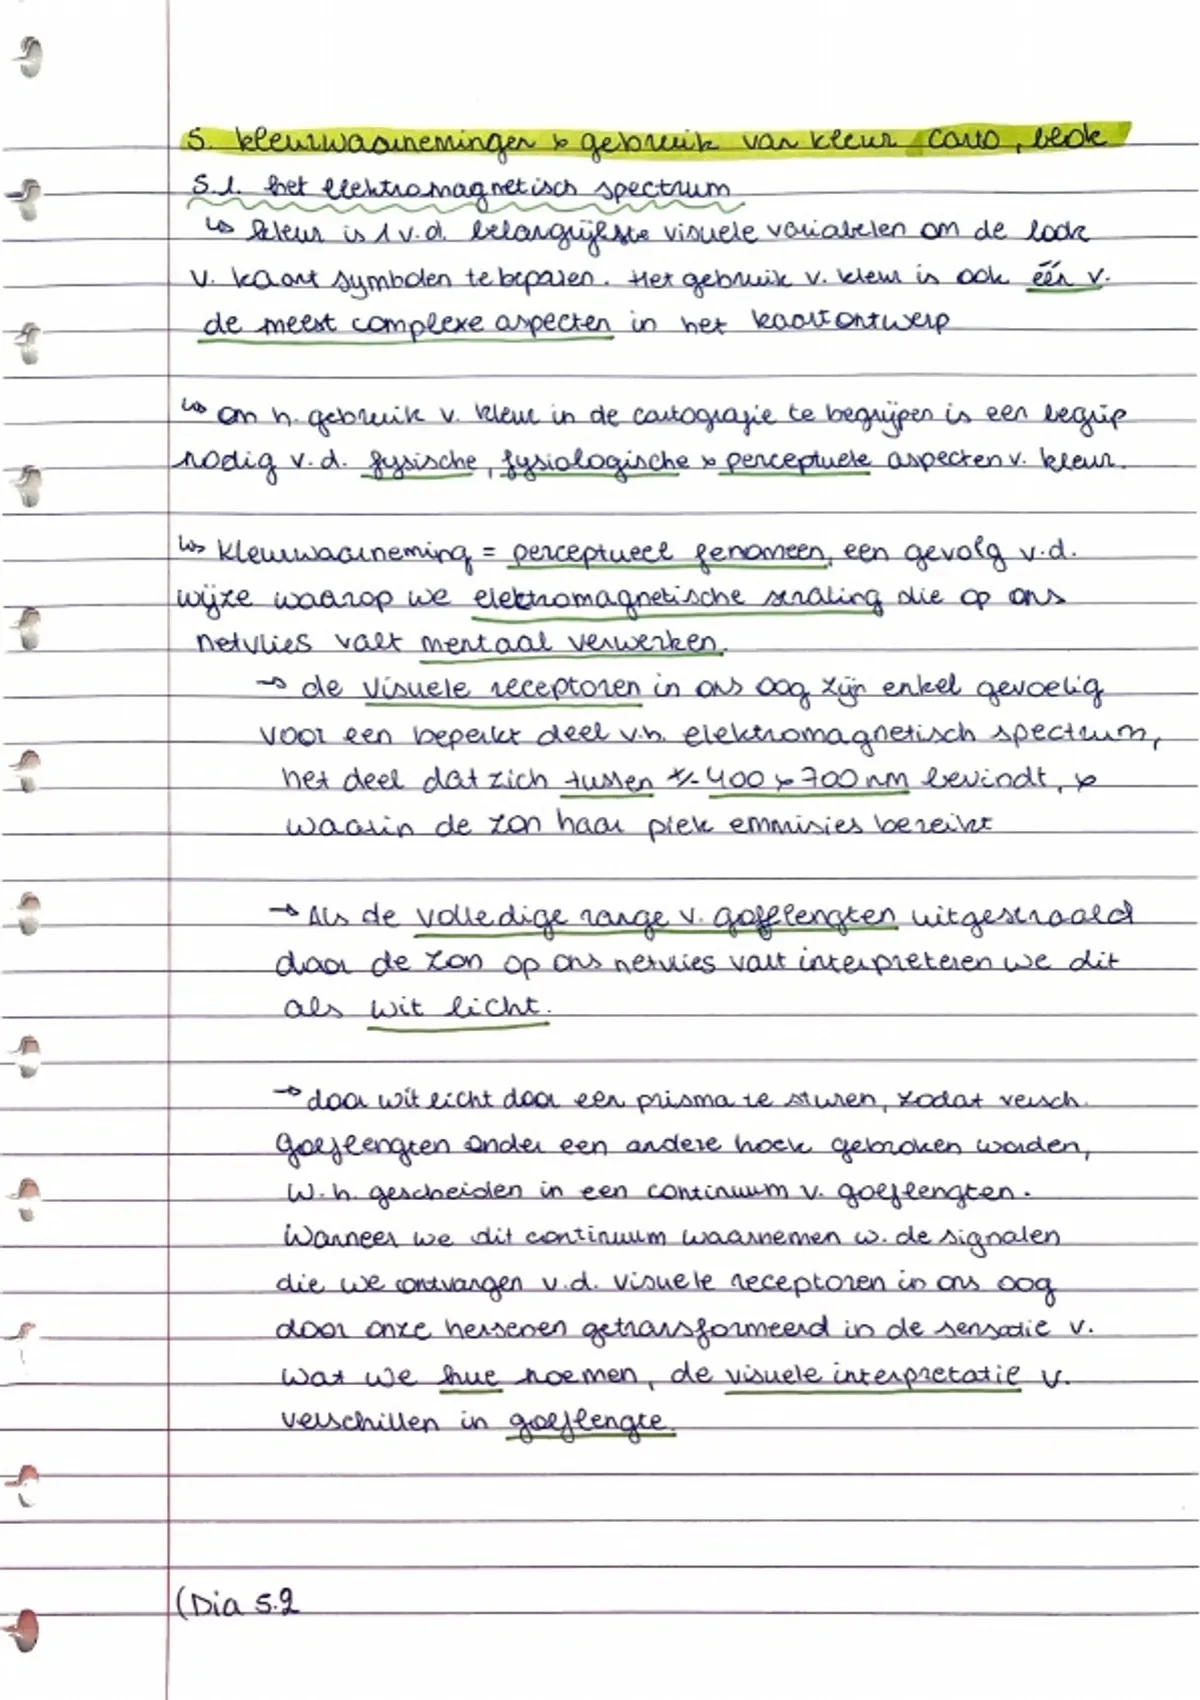 5. kleurwaarnemingen & gebruik van kleur carto, blok
5.1. het elektromagnetisch spectrum
↳ kleur is 1 v.d. belangrijkste visuele variabelen om de look
v. kaart symbolen te bepalen. Het gebruik v. kleur is ook één v.
de meest complexe aspecten in het kaartontwerp
↳ om h. gebruik v. kleur in de cartografie te begrijpen is een begrip
nodig v.d. fysische, fysiologische & perceptuele aspecten v. kleur.
↳ kleurwaarneming = perceptueel fenomeen, een gevolg v.d.
wijze waarop we elektromagnetische straling die op ons
netvlies valt mentaal verwerken.
→ de visuele receptoren in ons oog zijn enkel gevoelig
voor een beperkt deel v.h. elektromagnetisch spectrum,
het deel dat zich tussen +/- 400 & 700 nm bevindt, &
waarin de zon haar piek emmisies bereikt
→ Als de volledige range v. golflengten uitgestraald
door de zon op ons netvlies valt interpreteren we dit
als wit licht.
→ door wit licht door een prisma te sturen, zodat versch.
golflengten onder een andere hoek gebroken worden,
w. h. gescheiden in een continuum v. golflengten.
Wanneer we dit continuum waarnemen w. de signalen
die we ontvangen v.d. visuele receptoren in ons oog
door onze hersenen getransformeerd in de sensatie v.
wat we hue noemen, de visuele interpretatie v.
verschillen in golflengte.
(Dia 5.2